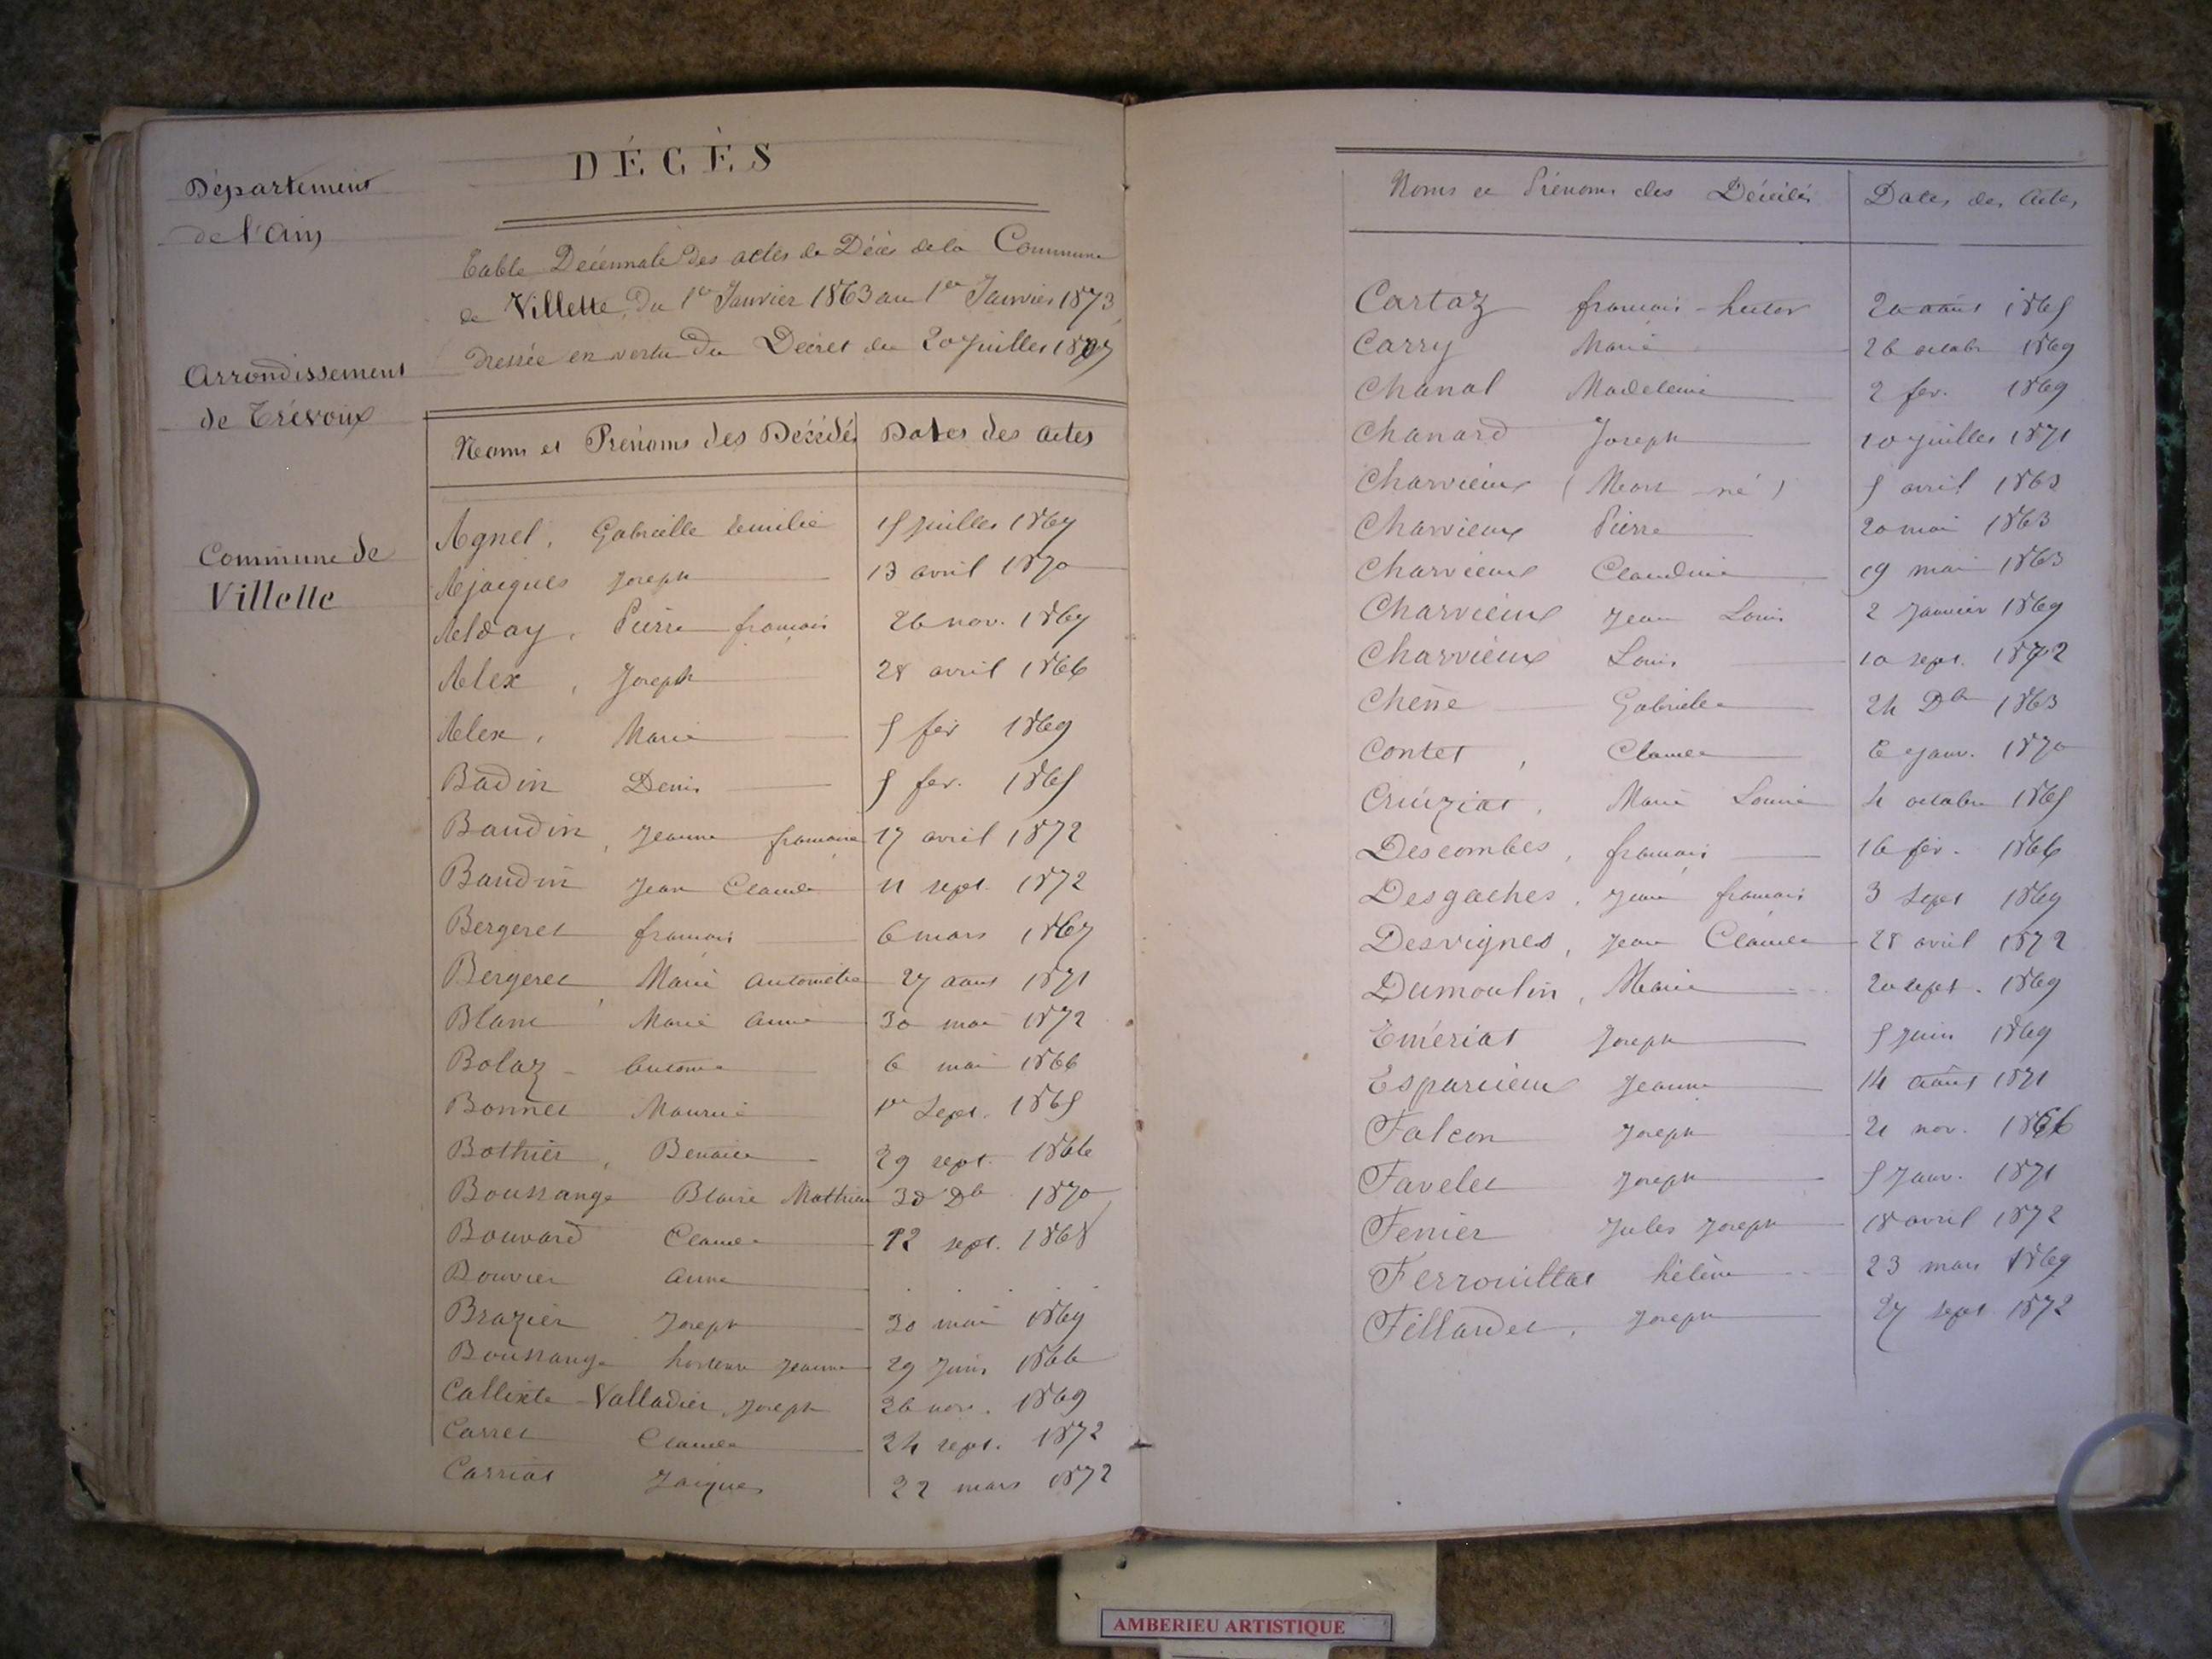 Département
de l'Ain
Arrondissement
de Trévoux
Commune de
Villette
DÉCÈS
Table Décennale des actes de Décès de la Commune
de Villette, du 1er Janvier 1863 au 1er Janvier 1873,
dressée en vertu du Décret du 20 Juillet 1807
Noms et Prénoms des Décédés Dates des actes
Agnel, Gabrielle Emilie 15 Juillet 1867
Ajacques Joseph 13 avril 1870
Alday, Pierre françois 26 nov. 1867
Alex, Joseph 28 avril 1866
Alex, Marie 5 fév 1869
Badin Denis 5 fev. 1865
Baudin, Jeanne françoise 17 avril 1872
Baudin Jean Claude 11 sept. 1872
Bergeret françois 6 mars 1867
Bergeret, Marie antoinette 27 aout 1871
Blanc Marie anne 30 mai 1872
Bolaz - antoine 6 mai 1866
Bonnet Maurice 1er Sept. 1865
Bothier, Benoite 29 sept. 1866
Boussange Blaise Mathieu 30 Dbre 1870
Bouvard Claude 12 sept. 1868
Bouvier anne
Brazier Joseph 30 mai 1869
Boussange hortense Jeanne 29 Juin 1866
Callixte - Valladier, Joseph 26 nov. 1869
Carret Claude 24 sept. 1872
Carriat Jacques 22 mars 1872
Noms et Prénoms des Décédés Dates des Actes
Cartaz françois - hector 20 août 1865
Carry Marie 26 octobre 1869
Chanal Madeleine 2 fev. 1869
Chanard Joseph 10 Juillet 1871
Charvieux (Mort - né) 5 avril 1863
Charvieux Pierre 20 mai 1863
Charvieux Claudine 19 mai 1863
Charvieux Jean Louis 2 Janvier 1869
Charvieux Louis 10 sept. 1872
Chêne Gabrielle 24 Dbre 1863
Contet, Claude 6 Janv. 1870
Cruiziat, Marie Louise 4 octobre 1865
Descombes, françois 16 fév. 1866
Desgaches, Jean françois 3 Sept 1869
Desvignes, Jean Claude 28 avril 1872
Dumoulin, Marie 20 sept. 1869
Emériat Joseph 5 Juin 1869
Esparcieux Jeanne 14 août 1871
Falcon Joseph 21 nov. 1866
Favelet Joseph 5 Janv. 1871
Fenier Jules Joseph 18 avril 1872
Ferrouillat hélène 23 mars 1869
Fillardet, Joseph 27 sept. 1872
AMBERIEU ARTISTIQUE